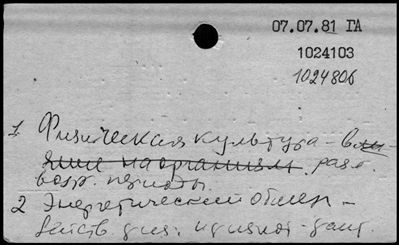 07.07.81 ГА
1024103
1024806
1. Физическая культура – вли-
яние на организм. разл.
возр. периоды.
2 Энергетический обмен –
действ. физ.